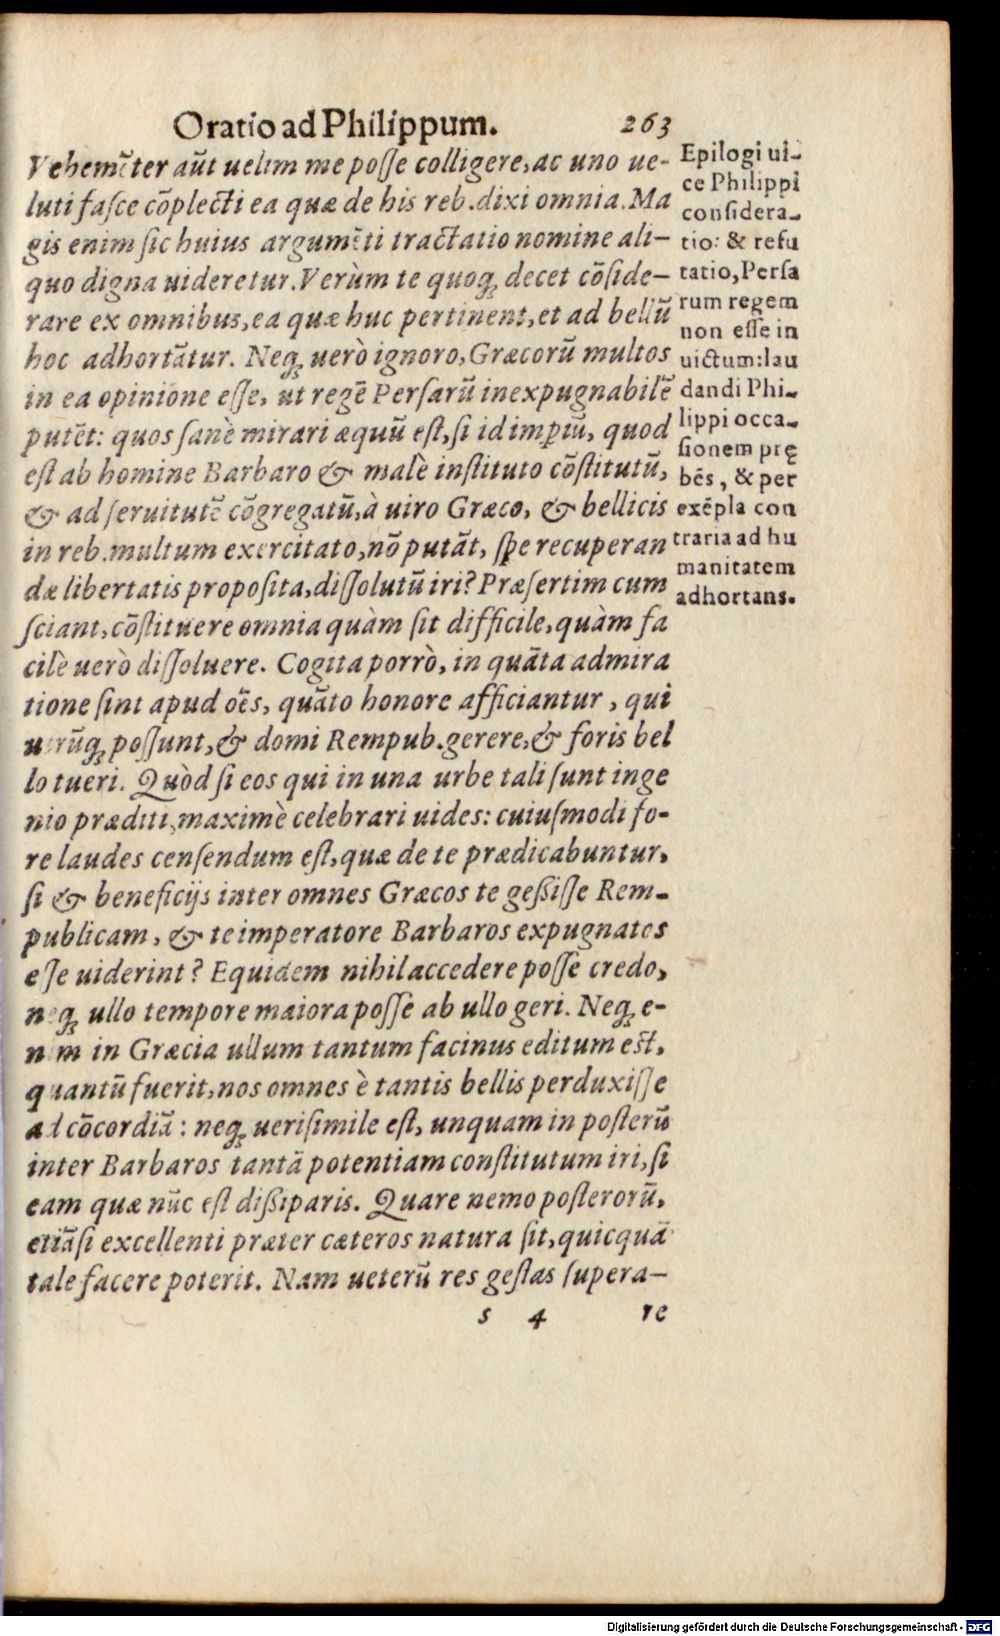 Oratio ad Philippum. 263
Vehemẽter aũt uelim me posse colligere, ac uno ue-
luti fasce cõplecti ea quæ de his reb. dixi omnia. Ma
gis enim sic huius argumẽti tractatio nomine ali-
quo digna uideretur. Verùm te quoq; decet cõside-
rare ex omnibus, ea quæ huc pertinent, et ad bellũ
hoc adhortãtur. Neq; uerò ignoro, Græcorũ multos
in ea opinione esse, ut regẽ Persarũ inexpugnabilẽ
putẽt: quos sanè mirari æquũ est, si id imperiũ, quod
est ab homine Barbaro & malè instituto cõstitutũ,
& ad seruitutẽ cõgregatũ, à uiro Græco, & bellicis
in reb. multum exercitato, nõ putãt, spe recuperan
dæ libertatis proposita, dissolutũ iri? Præsertim cum
sciant, cõstituere omnia quàm sit difficile, quàm fa
cilè uerò dissoluere. Cogita porrò, in quãta admira
tione sint apud oẽs, quãto honore afficiantur, qui
utrũq; possunt, & domi Rempub. gerere, & foris bel
lo tueri. Quòd si eos qui in una urbe tali sunt inge
nio præditi, maximè celebrari uides: cuiusmodi fo-
re laudes censendum est, quæ de te prædicabuntur,
si & beneficijs inter omnes Græcos te gessisse Rem-
publicam, & te imperatore Barbaros expugnatos
esse uiderint? Equidem nihil accedere posse credo,
neq; ullo tempore maiora posse ab ullo geri. Neq; e-
nim in Græcia ullum tantum facinus editum est,
quantũ fuerit, nos omnes è tantis bellis perduxisse
ad cõcordiã: neq; uerisimile est, unquam in posterũ
inter Barbaros tantã potentiam constitutum iri, si
eam quæ nũc est dissiparis. Quare nemo posterorũ,
etiãsi excellenti præter cæteros natura sit, quicquã
tale facere poterit. Nam ueterũ res gestas supera-
s 4 re
Epilogi ui-
ce Philippi
considera-
tio: & refu
tatio, Persa
rum regem
non esse in
uictum: lau
dandi Phi-
lippi occa-
sionem prę
bẽs, & per
exẽpla con
traria ad hu
manitatem
adhortans.
Digitalisierung gefördert durch die Deutsche Forschungsgemeinschaft - DFG